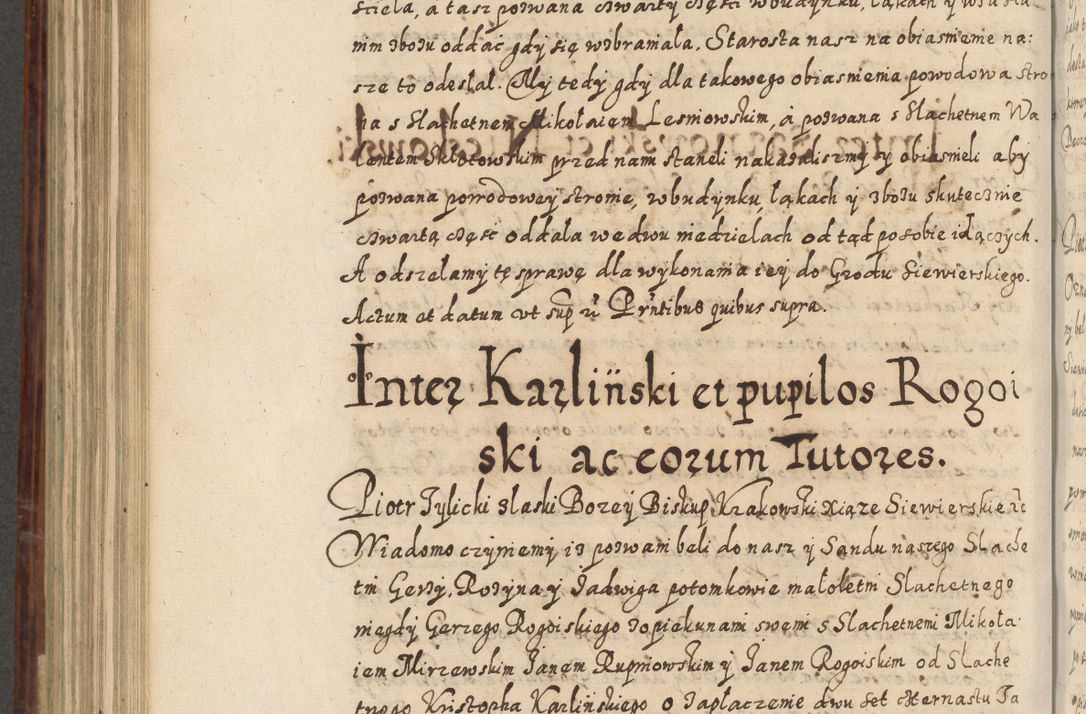 sciela, a tasz pozwana czwarty części wbudynku, łąkach y wsia
nim zbożu oddać gdy się wzbraniala. Starosta nasz na obiasnienie na:
sze to odeslal. My tedy gdy dla takowego obiasnienia powodowa stro
na s Slachetnem Mikołaiem Lesniowskim, á pozwana s Slachetnem Wa
lentem Skłotowskim przed nam staneli nakazalismy y obiasnieli aby
pozwana powodowey stronie, wbudynku, łąkach y zbożu skutecznie
czwartą część oddala we dwu niedzielach od tąd posobie idączych.
A odszelamy tę sprawę dla wykonania iey do Grodu Siewierskiego.
Actum et datum ut sup ra Prntibus quibus supra.
Inter Karliński et pupilos Rogoi
ski ac eorum Tutores.
Piotr Tylicki zlaski Bozey Biskup Krakowski Xiąze Siewierskie etc
Wiadomo czyniemy, iz pozwani beli do nasz y Sandu naszego Slache
tni Gerzy, Rozyna y Jadwiga potomkowie małoletni Slachetnego
niegdy Gerzego Rogoiskiego zopiekunami swemi s Slachetnemi Mikoła
iem Mirzewskim Janem Rupniowskim y Janem Rogoiskim od Slache
tnego Kristopha Karlińskiego o zapłaczenie dwu set czternastu Ta